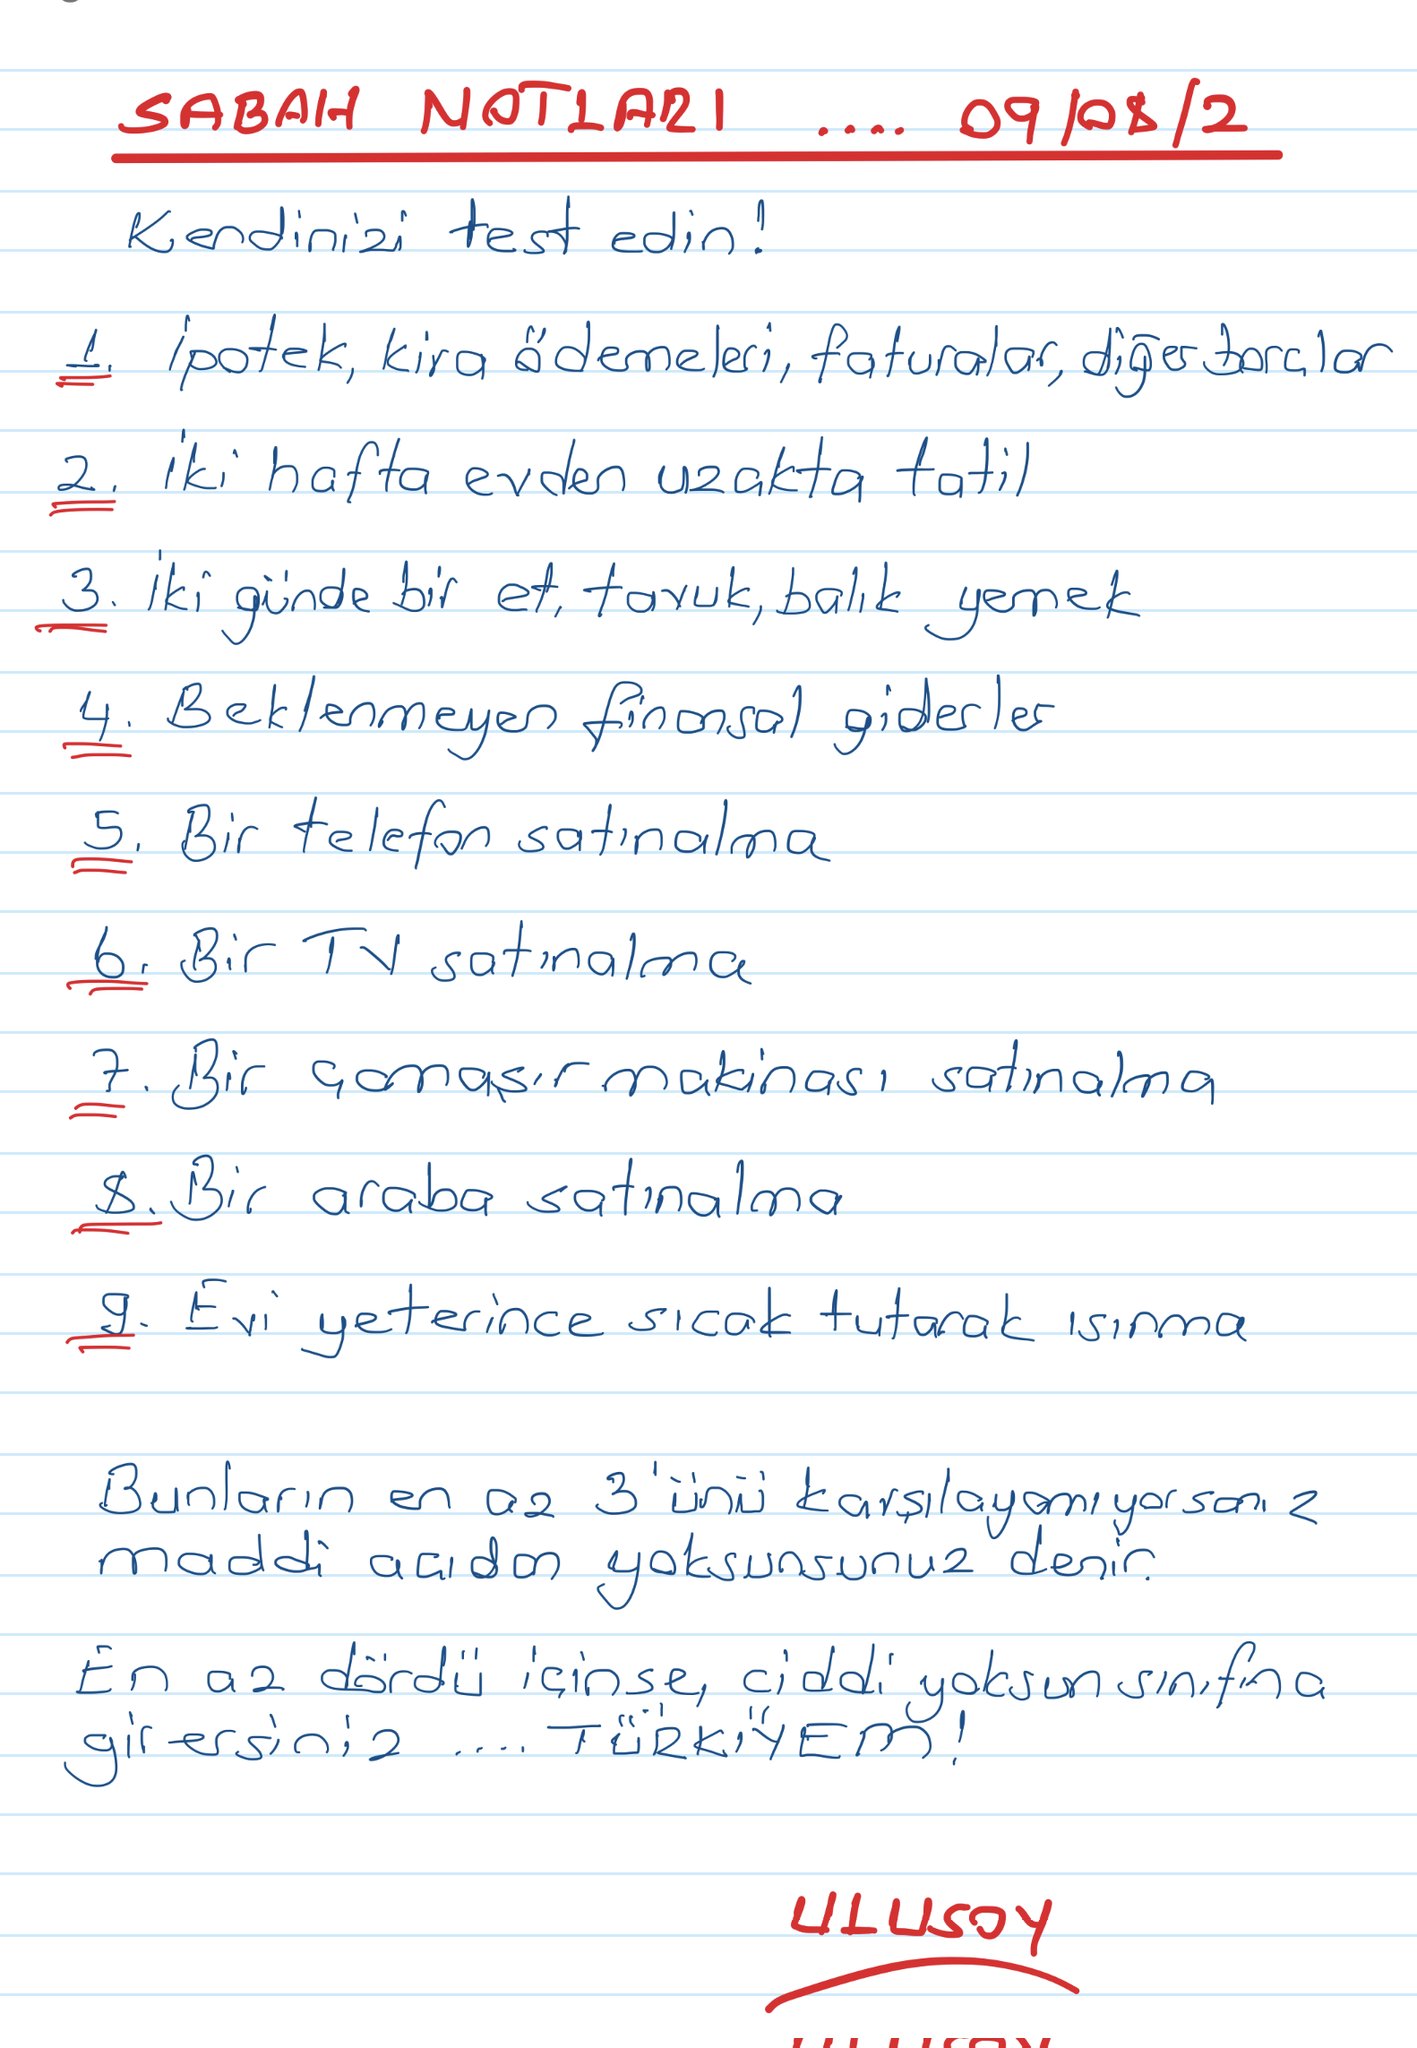 SABAH NOTLARI .... 09/08/2
Kendinizi test edin!
1. İpotek, kira ödemeleri, faturalar, diğer borçlar
2. İki hafta evden uzakta tatil
3. İki günde bir et, tavuk, balık yemek
4. Beklenmeyen finansal giderler
5. Bir telefon satınalma
6. Bir TV satınalma
7. Bir çamaşır makinası satınalma
8. Bir araba satınalma
9. Evi yeterince sıcak tutarak ısınma
Bunların en az 3'ünü karşılayamıyorsanız
maddi açıdan yoksunsunuz denir.
En az dördü içinse, ciddi yoksun sınıfına
girersiniz .... TÜRKİYEM!
ULUSOY
ULUSOY